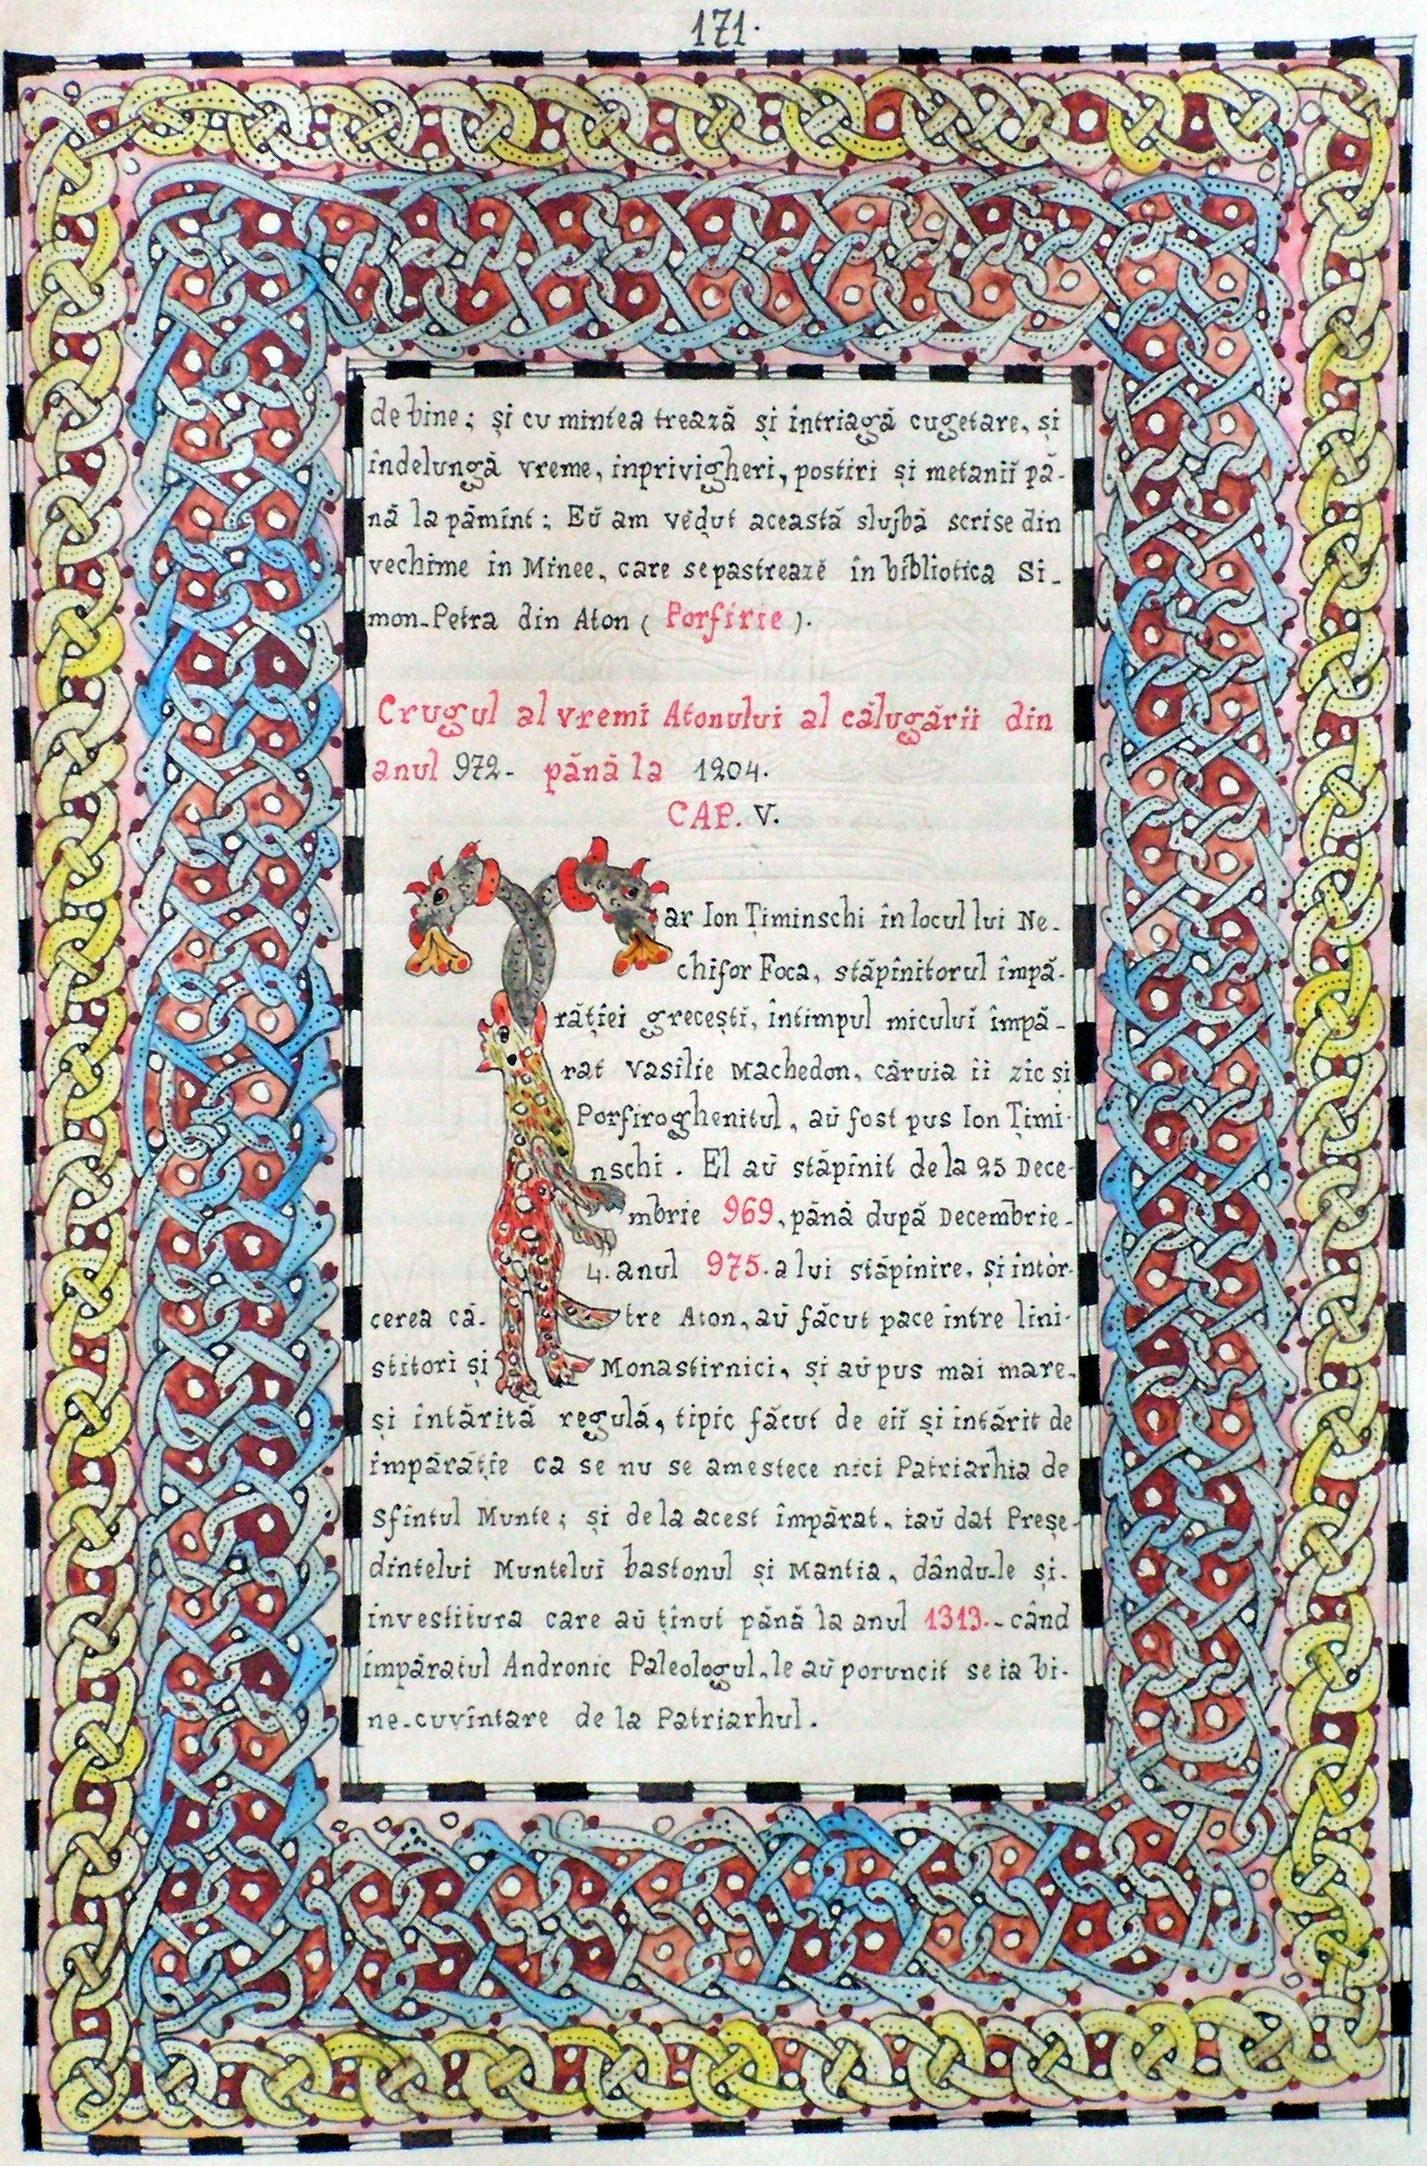 171.
de bine; și cu mintea trează și intriagă cugetare, și
îndelungă vreme, inprivigheri, postiri și metanii pă-
nă la pămînt; Eŭ am vĕḑut această slujbă scrise din
vechime în Minee, care sepastreazĕ în bibliotica Si-
mon-Petra din Aton (Porfirie).
Crugul al vremi Atonului al călugării din
anul 972- pănă la 1204.
CAP. V.
Țar Ion Țiminschi în locul lui Ne-
chifor Foca, stăpînitorul împă-
răției grecești, intimpul miculuĭ împă-
rat Vasilie Machedon, căruia ii zic și
Porfiroghenitul, aŭ fost pus Ion Țimi-
nschi. El aŭ stăpînit de la 25 Dece-
mbrie 969, pănă după Decembrie-
4. anul 975. a lui stăpînire, și intor-
cerea că-tre Aton, aŭ făcut pace intre lini-
stitori și Monastirnici, și aŭ pus mai mare,
și intărită regulă, tipic făcut de eiĭ și intărit de
împărăție ca se nu se amestece nici Patriarhia de
Sfintul Munte; și de la acest împărat, iaŭ dat Preșe-
dintelui Muntelui bastonul și Mantia, dându-le și-
investitura care aŭ ținut pănă la anul 1313.- când
împăratul Andronic Paleologul, le aŭ poruncit se ia bi-
ne-cuvîntare de la Patriarhul.